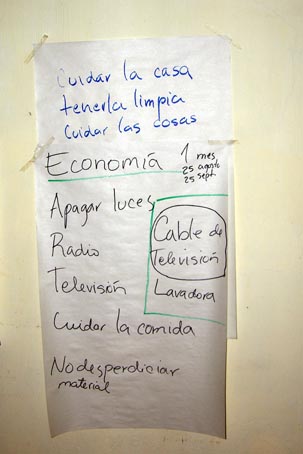 Cuidar la casa
tenerla limpia
Cuidar las cosas
Economía 1 mes
25 agosto
25 sept.
Apagar luces
Cable de
Radio
Televisión
Televisión
Lavadora
Cuidar la comida
No desperdiciar
material